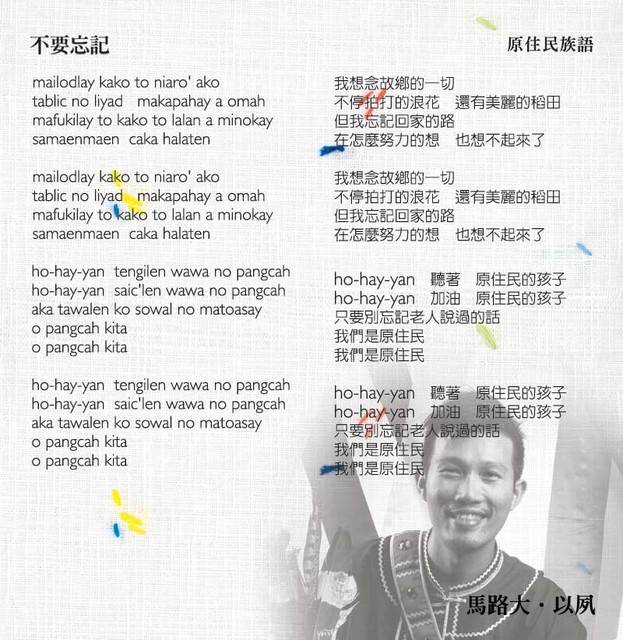 不要忘記
原住民族語
mailodlay kako to niaro' ako
tablic no liyad makapahay a omah
mafukilay to kako to lalan a minokay
samaenmaen caka halaten
mailodlay kako to niaro' ako
tablic no liyad makapahay a omah
mafukilay to kako to lalan a minokay
samaenmaen caka halaten
ho-hay-yan tengilen wawa no pangcah
ho-hay-yan saic'len wawa no pangcah
aka tawalen ko sowal no matoasay
o pangcah kita
o pangcah kita
ho-hay-yan tengilen wawa no pangcah
ho-hay-yan saic'len wawa no pangcah
aka tawalen ko sowal no matoasay
o pangcah kita
o pangcah kita
我想念故鄉的一切
不停拍打的浪花 還有美麗的稻田
但我忘記回家的路
在怎麼努力的想 也想不起來了
我想念故鄉的一切
不停拍打的浪花 還有美麗的稻田
但我忘記回家的路
在怎麼努力的想 也想不起來了
ho-hay-yan 聽著 原住民的孩子
ho-hay-yan 加油 原住民的孩子
只要別忘記老人說過的話
我們是原住民
我們是原住民
ho-hay-yan 聽著 原住民的孩子
ho-hay-yan 加油 原住民的孩子
只要別忘記老人說過的話
我們是原住民
我們是原住民
馬路大・以夙